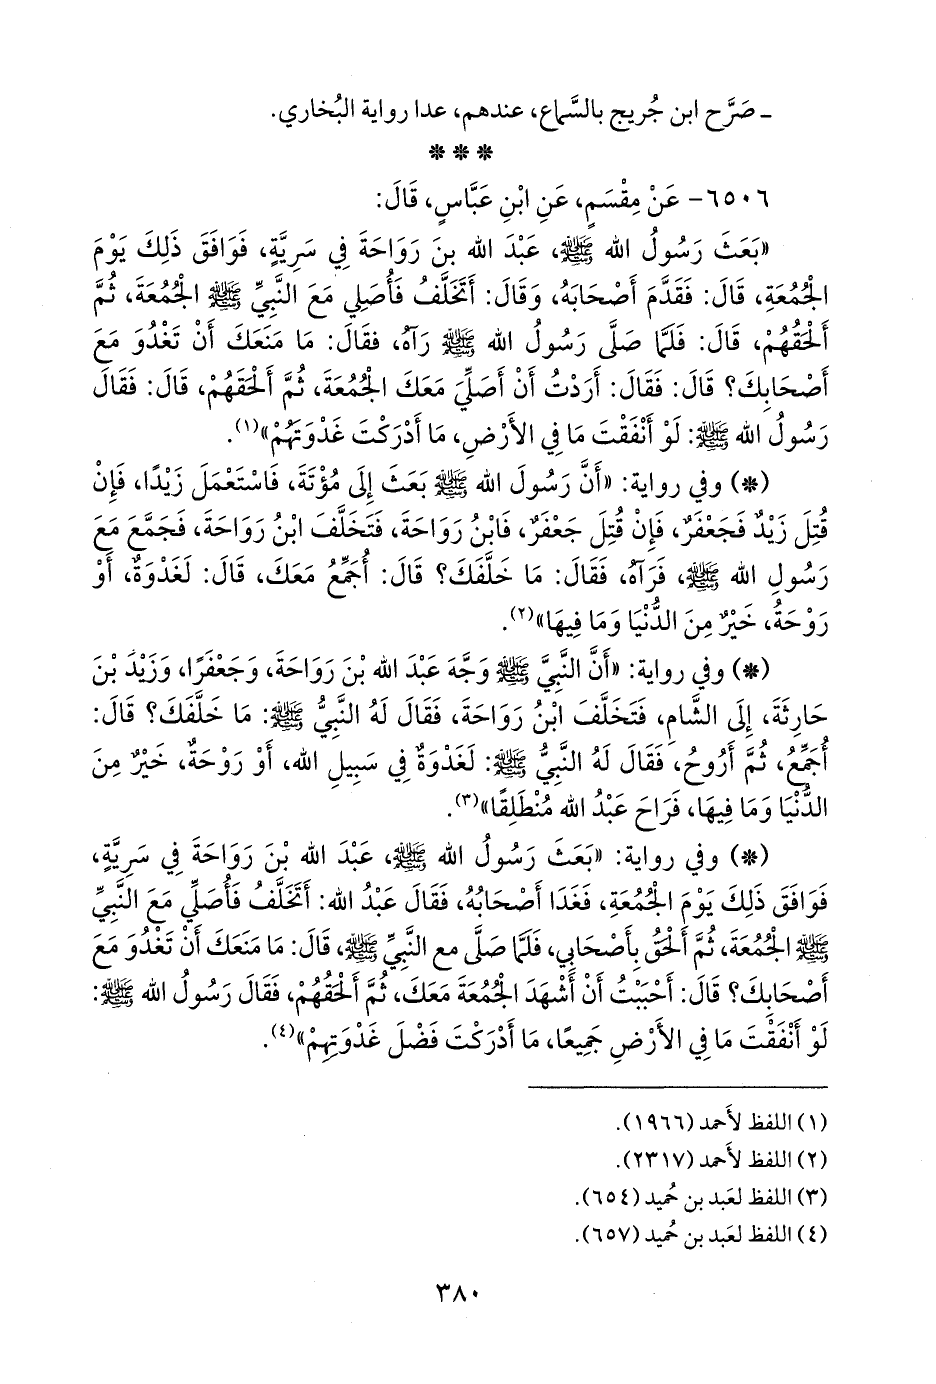 ـ صَرَّح ابن جُريج بالسَّماع، عندهم، عدا رواية البُخاري.
* * *
٦٥٠٦- عَنْ مِقْسَمٍ، عَنِ ابْنِ عَبَّاسٍ، قَالَ:
«بَعَثَ رَسُولُ الله ﷺ، عَبْدَ الله بنَ رَوَاحَةَ فِي سَرِيَّةٍ، فَوَافَقَ ذَلِكَ يَوْمَ
الْجُمُعَةِ، قَالَ: فَقَدَّمَ أَصْحَابَهُ، وَقَالَ: أَتَخَلَّفُ فَأُصَلِّي مَعَ النَّبِيِّ ﷺ الْجُمُعَةَ، ثُمَّ
أَلْحَقُهُمْ، قَالَ: فَلَمَّا صَلَّى رَسُولُ الله ﷺ رَآهُ، فقَالَ: مَا مَنَعَكَ أَنْ تَغْدُوَ مَعَ
أَصْحَابِكَ؟ قَالَ: فَقَالَ: أَرَدْتُ أَنْ أُصَلِّيَ مَعَكَ الْجُمُعَةَ، ثُمَّ أَلْحَقَهُمْ، قَالَ: فَقَالَ
رَسُولُ الله ﷺ: لَوْ أَنْفَقْتَ مَا فِي الأَرْضِ، مَا أَدْرَكْتَ غَدْوَتَهُمْ»(١).
(*) وفي رواية: «أَنَّ رَسُولَ الله ﷺ بَعَثَ إِلَى مُؤْتَةَ، فَاسْتَعْمَلَ زَيْدًا، فَإِنْ
قُتِلَ زَيْدٌ فَجَعْفَرٌ، فَإِنْ قُتِلَ جَعْفَرٌ، فَابْنُ رَوَاحَةَ، فَتَخَلَّفَ ابْنُ رَوَاحَةَ، فَجَمَّعَ مَعَ
رَسُولِ الله ﷺ، فَرَآهُ، فَقَالَ: مَا خَلَّفَكَ؟ قَالَ: أُجَمِّعُ مَعَكَ، قَالَ: لَغَدْوَةٌ، أَوْ
رَوْحَةٌ، خَيْرٌ مِنَ الدُّنْيَا وَمَا فِيهَا»(٢).
(*) وفي رواية: «أَنَّ النَّبِيَّ ﷺ وَجَّهَ عَبْدَ الله بْنَ رَوَاحَةَ، وَجَعْفَرًا، وَزَيْدَ بْنَ
حَارِثَةَ، إِلَى الشَّامِ، فَتَخَلَّفَ ابْنُ رَوَاحَةَ، فَقَالَ لَهُ النَّبِيُّ ﷺ: مَا خَلَّفَكَ؟ قَالَ:
أُجَمِّعُ، ثُمَّ أَرُوحُ، فَقَالَ لَهُ النَّبِيُّ ﷺ: لَغَدْوَةٌ فِي سَبِيلِ الله، أَوْ رَوْحَةٌ، خَيْرٌ مِنَ
الدُّنْيَا وَمَا فِيهَا، فَرَاحَ عَبْدُ الله مُنْطَلِقًا»(٣).
(*) وفي رواية: «بَعَثَ رَسُولُ الله ﷺ، عَبْدَ الله بْنَ رَوَاحَةَ فِي سَرِيَّةٍ،
فَوَافَقَ ذَلِكَ يَوْمَ الْجُمُعَةِ، فَغَدَا أَصْحَابُهُ، فَقَالَ عَبْدُ الله: أَتَخَلَّفُ فَأُصَلِّي مَعَ النَّبِيِّ
ﷺ الْجُمُعَةَ، ثُمَّ أَلْحَقُ بِأَصْحَابِي، فَلَمَّا صَلَّى مع النَّبِيِّ ﷺ، قَالَ: مَا مَنَعَكَ أَنْ تَغْدُوَ مَعَ
أَصْحَابِكَ؟ قَالَ: أَحْبَبْتُ أَنْ أَشْهَدَ الْجُمُعَةَ مَعَكَ، ثُمَّ أَلْحَقُهُمْ، فَقَالَ رَسُولُ الله ﷺ:
لَوْ أَنْفَقْتَ مَا فِي الأَرْضِ جَمِيعًا، مَا أَدْرَكْتَ فَضْلَ غَدْوَتِهِمْ»(٤).
(١) اللفظ لأَحمد (١٩٦٦).
(٢) اللفظ لأَحمد (٢٣١٧).
(٣) اللفظ لعَبد بن حُميد (٦٥٤).
(٤) اللفظ لعَبد بن حُميد (٦٥٧).
٣٨٠